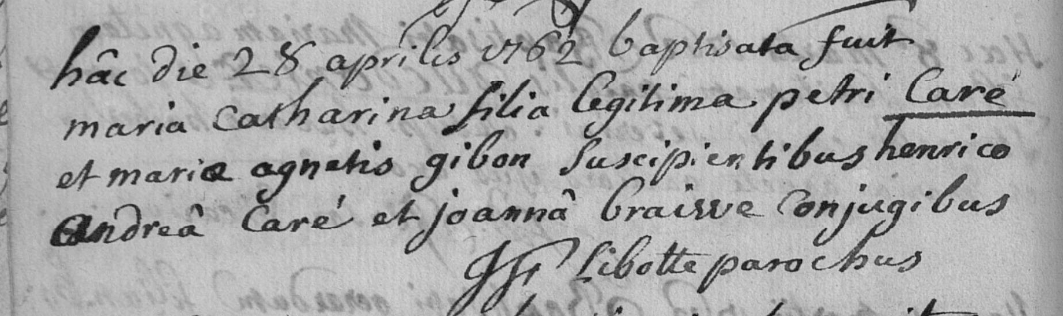 hâc die 28 aprilis 1762 baptisata fuit
maria catharina filia legitima petri Caré
et mariæ agnetis gibon suscipientibus henrico
andreâ Caré et joannâ braivve conjugibus
Libotte parochus